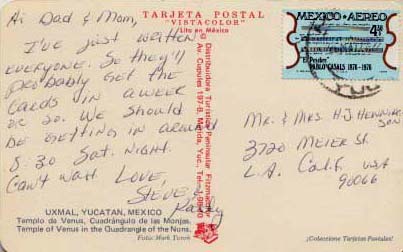 TARJETA POSTAL
"VISTACOLOR"
Lito en México
Hi Dad & Mom,
I've just written
everyone. So they'll
probably get the
cards in a week
or so. We should
be getting in around
8:30 Sat. night.
Can't wait. Love,
Steve &
Kathy
UXMAL, YUCATAN, MEXICO
Templo de Venus, Cuadrángulo de las Monjas.
Temple of Venus in the Quadrangle of the Nuns.
Foto: Mark Turok
Distribuidora Turística Peninsular Fitzmaurice
Av. Cupules 197-B, Mérida, Yuc., Tel.
MEXICO AEREO
4.30
"El Pesebre"
PABLO CASALS 1876-1976
YUC
Mr. & Mrs. H J Hennings
son
3720 MEIER St
L.A. Calif. USA
90066
¡Coleccione Tarjetas Postales!